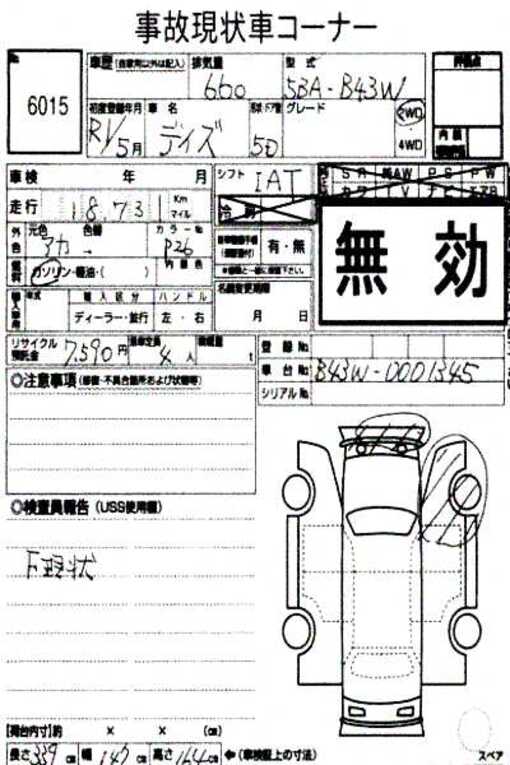 事故現状車コーナー
No
6015
車歴 (自家用以外は記入) 排気量 型式
660 5BA-B43W
評価点
初度登録年月 車名 形状・ドア数 グレード
5月 デイズ 5D
2WD
4WD
内装
車検 年 月
シフト IAT
走行 18,731 Km
マイル
冷房
外色 元色 色替 カラーNo
アカ P26
有・無
無効
燃料 ガソリン・軽油・( ) 内装色
名義変更期限
月 日
輸入車 年式 輸入区分 ハンドル
ディーラー・並行 左・右
リサイクル預託金 7,590円 乗車定員 4人 積載量 t
登録No
車台No B43W-0001345
シリアルNo
◎注意事項 (修復・不具合箇所および状態等)
◎検査員報告 (USS使用欄)
下現状
[荷台内寸]約 × × (cm)
長さ 339 cm 幅 147 cm 高さ 164 cm ←(車検証上の寸法)
スペア